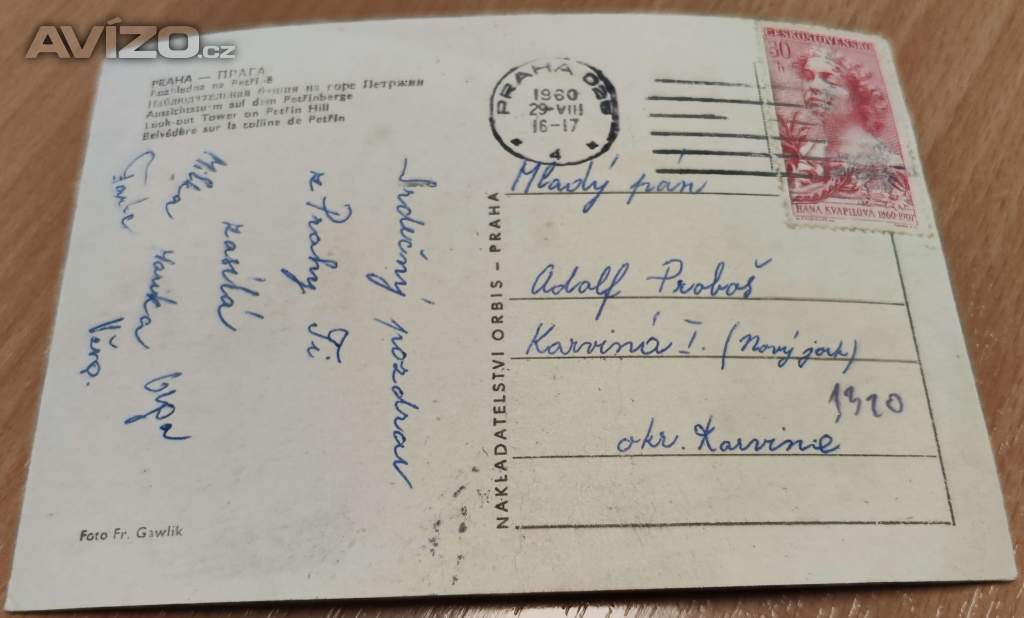 AVÍZO.cz
PRAHA — ПРАГА
Rozhledna na Petříně
Наблюдательная башня на горе Петржин
Aussichtsturm auf dem Petřínberge
Look-out Tower on Petřín Hill
Belvédère sur la colline de Petřín
Srdečný pozdrav
z Prahy Ti
zasílá
Věra.
Foto Fr. Gawlik
NAKLADATELSTVÍ ORBIS – PRAHA
PRAHA 025
1960
29-VIII
16-17
4
ČESKOSLOVENSKO
30
HANA KVAPILOVÁ 1860-1907
Mladý pán
Adolf Proboš
Karviná I. (Nový jork)
1320
okr. Karvinné